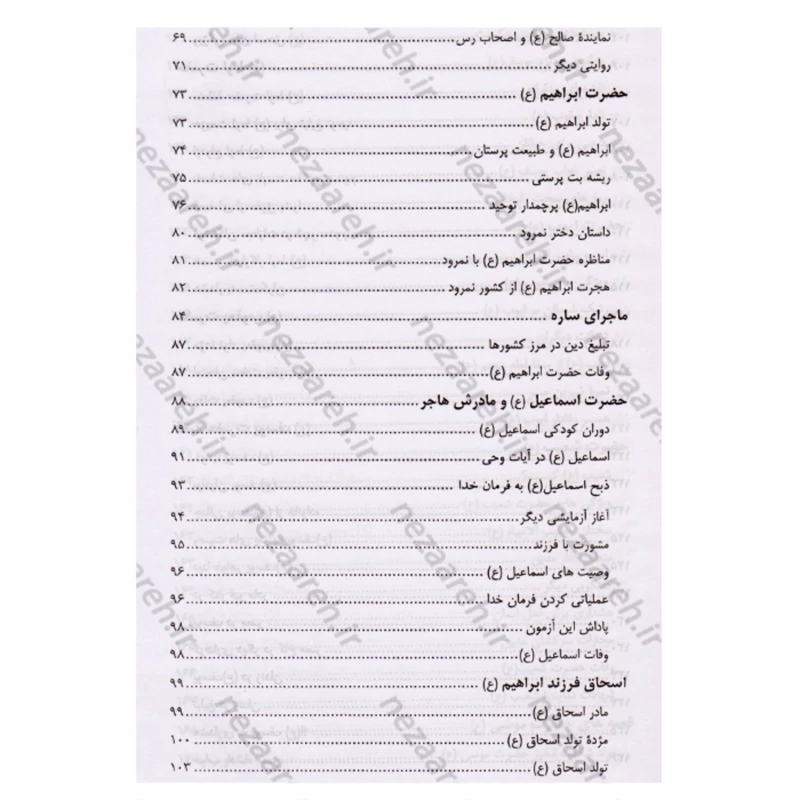 نمایندۀ صالح (ع) و اصحاب رس ........ ۶۹
روایتی دیگر ........ ۷۱
حضرت ابراهیم (ع) ........ ۷۳
تولد ابراهیم (ع) ........ ۷۳
ابراهیم (ع) و طبیعت پرستان ........ ۷۴
ریشه بت پرستی ........ ۷۵
ابراهیم(ع) پرچمدار توحید ........ ۷۶
داستان دختر نمرود ........ ۸۰
مناظره حضرت ابراهیم (ع) با نمرود ........ ۸۱
هجرت ابراهیم (ع) از کشور نمرود ........ ۸۲
ماجرای ساره ........ ۸۴
تبلیغ دین در مرز کشورها ........ ۸۷
وفات حضرت ابراهیم (ع) ........ ۸۷
حضرت اسماعیل (ع) و مادرش هاجر ........ ۸۸
دوران کودکی اسماعیل (ع) ........ ۸۹
اسماعیل (ع) در آیات وحی ........ ۹۱
ذبح اسماعیل(ع) به فرمان خدا ........ ۹۳
آغاز آزمایشی دیگر ........ ۹۴
مشورت با فرزند ........ ۹۵
وصیت های اسماعیل (ع) ........ ۹۶
عملیاتی کردن فرمان خدا ........ ۹۶
پاداش این آزمون ........ ۹۸
وفات اسماعیل (ع) ........ ۹۸
اسحاق فرزند ابراهیم (ع) ........ ۹۹
مادر اسحاق (ع) ........ ۹۹
مژدۀ تولد اسحاق (ع) ........ ۱۰۰
تولد اسحاق (ع) ........ ۱۰۳
nezaareh.ir